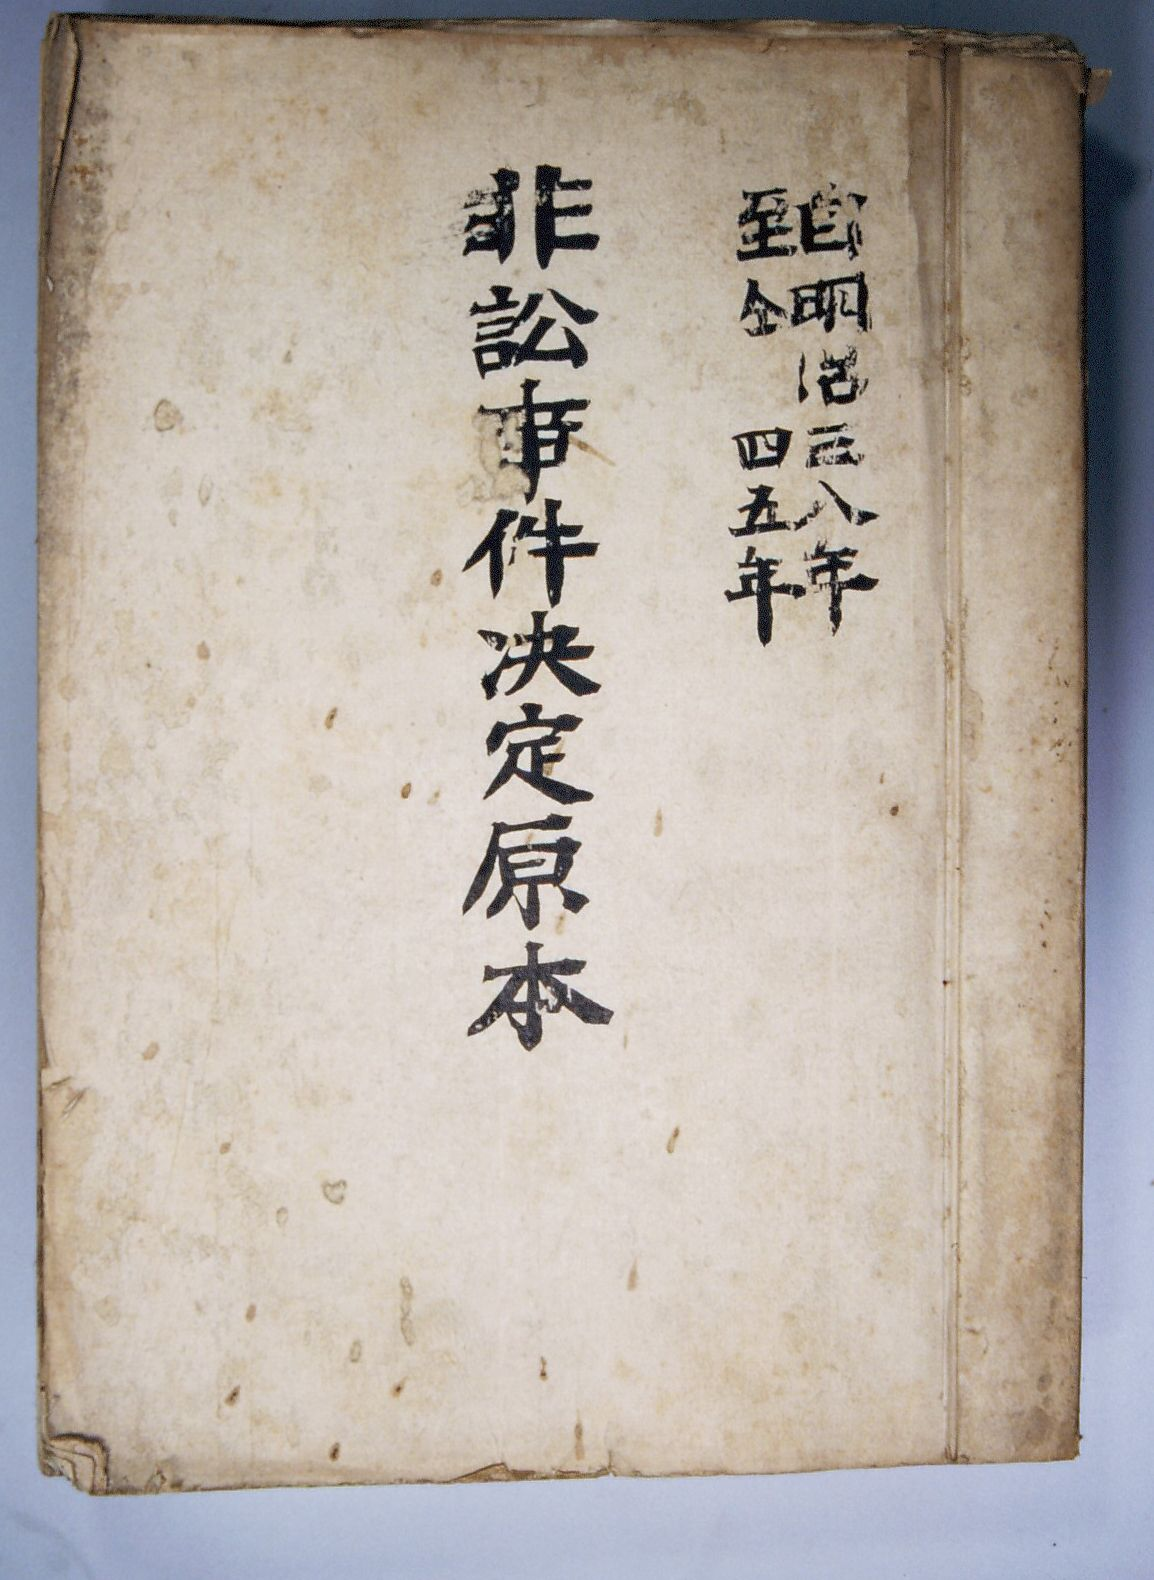 自明治三八年
至仝四五年
非訟事件决定原本